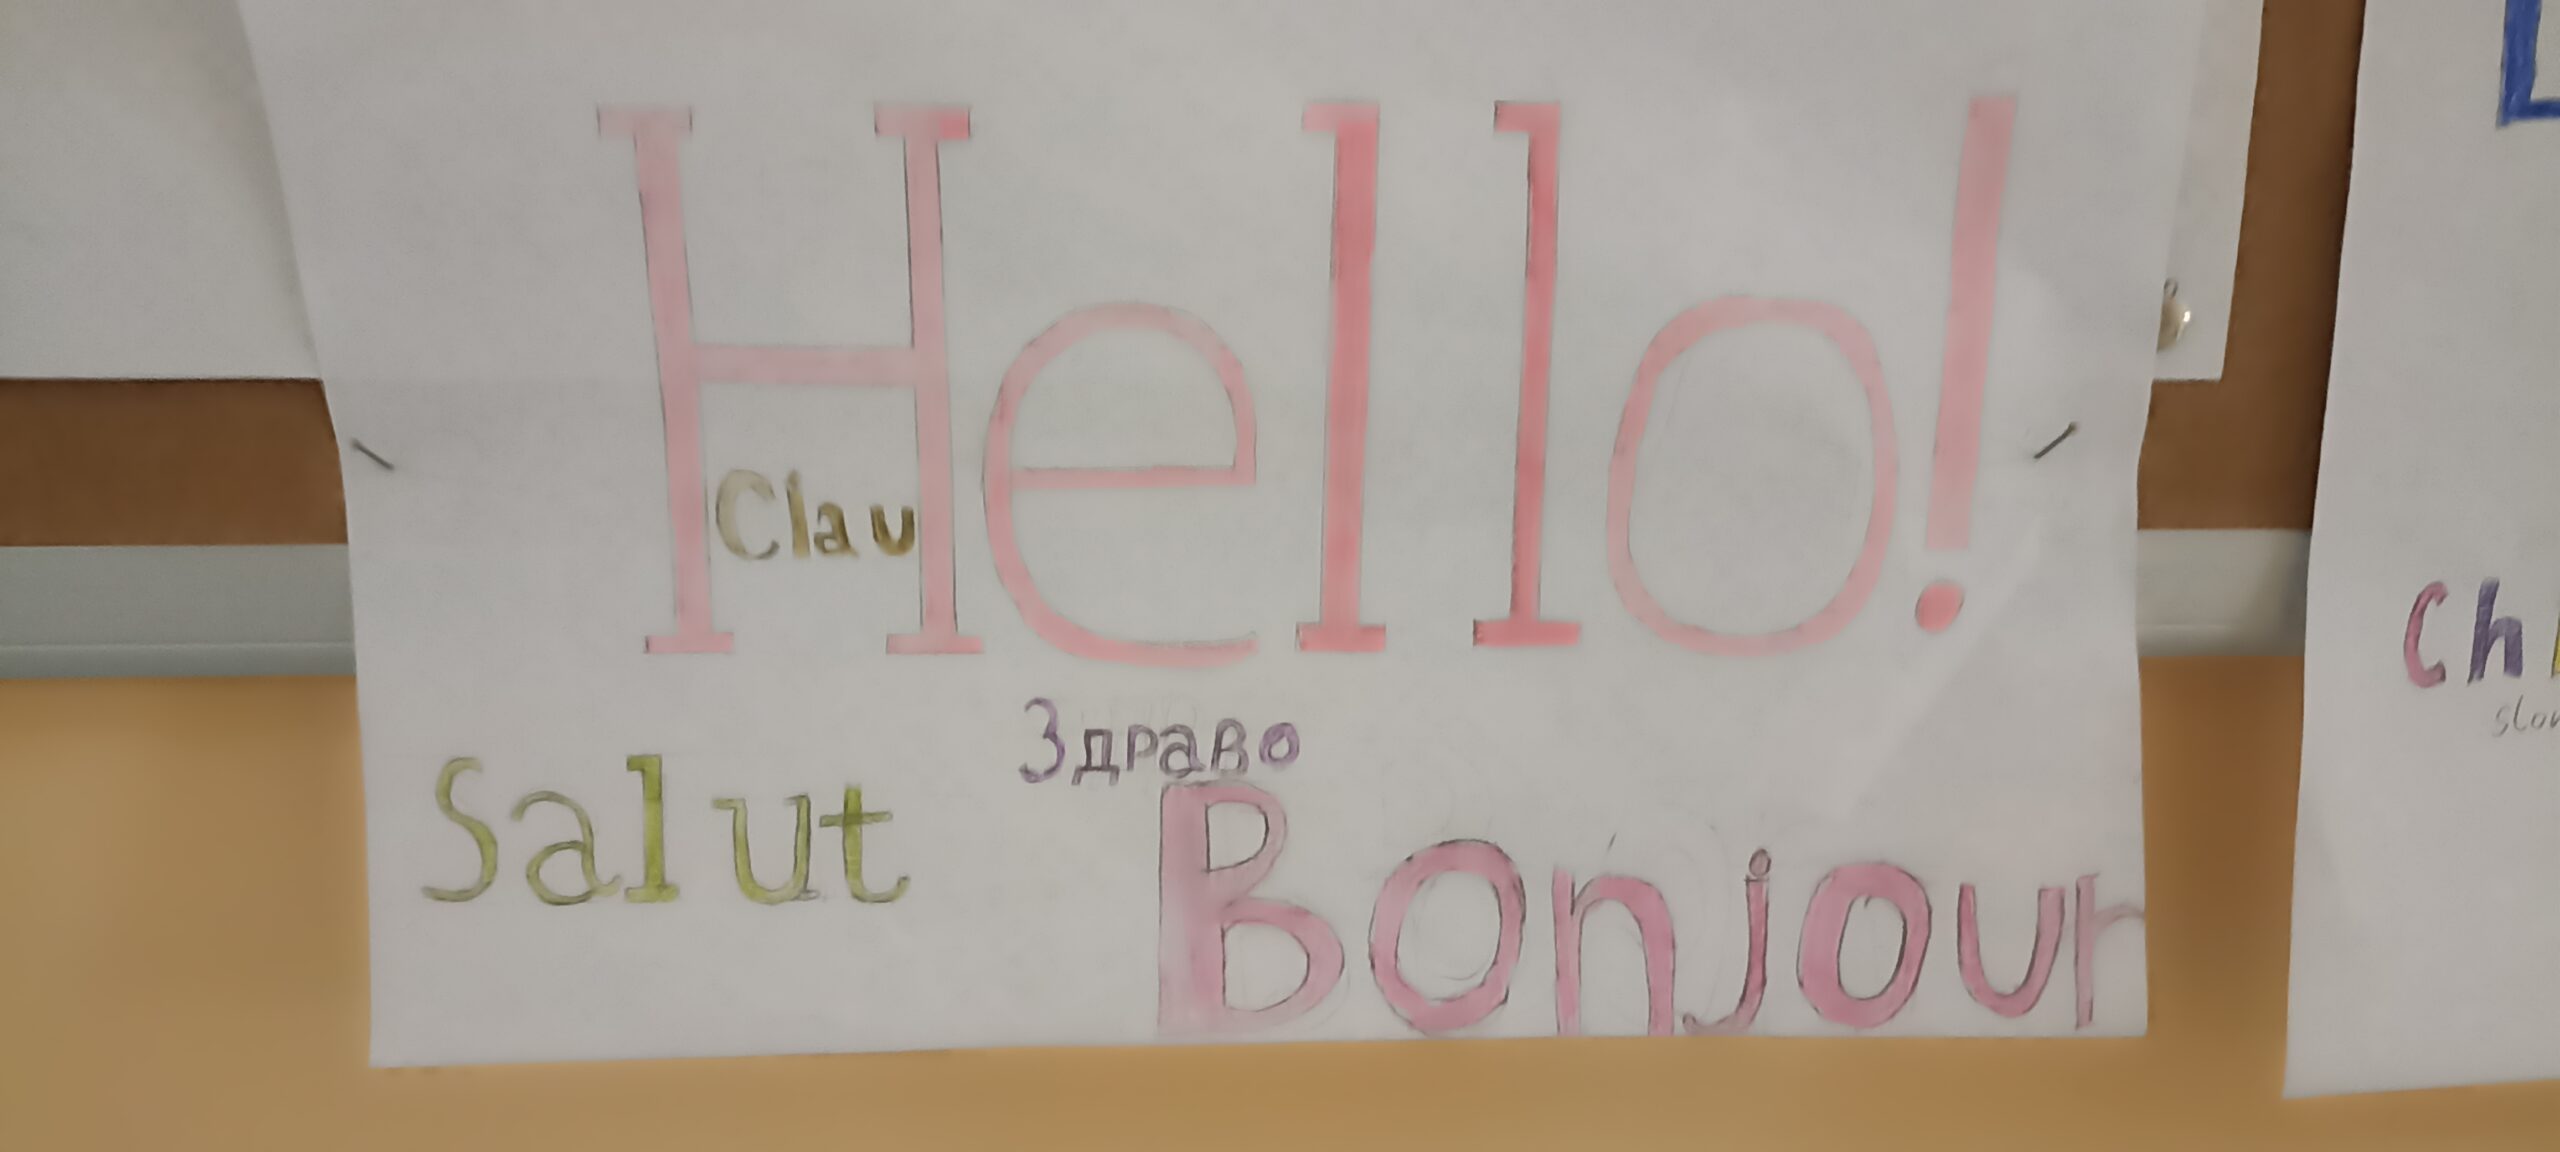 Hello!
Clau
Здраво
Salut
Bonjour
Ch